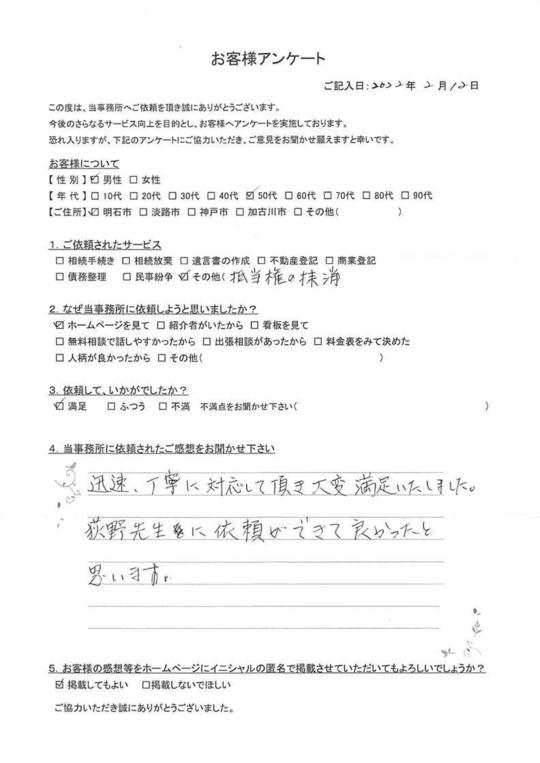 お客様アンケート
ご記入日:2022年 2月12日
この度は、当事務所へご依頼を頂き誠にありがとうございます。
今後のさらなるサービス向上を目的とし、お客様へアンケートを実施しております。
恐れ入りますが、下記のアンケートにご協力いただき、ご意見をお聞かせ願えますと幸いです。
お客様について
【 性 別 】☑ 男性 □ 女性
【 年 代 】□ 10代 □ 20代 □ 30代 □ 40代 ☑ 50代 □ 60代 □ 70代 □ 80代 □ 90代
【ご住所】☑ 明石市 □ 淡路市 □ 神戸市 □ 加古川市 □ その他( )
1. ご依頼されたサービス
□ 相続手続き □ 相続放棄 □ 遺言書の作成 □ 不動産登記 □ 商業登記
□ 債務整理 □ 民事紛争 ☑ その他( 抵当権の抹消
2. なぜ当事務所に依頼しようと思いましたか?
☑ ホームページを見て □ 紹介者がいたから □ 看板を見て
□ 無料相談で話しやすかったから □ 出張相談があったから □ 料金表をみて決めた
□ 人柄が良かったから □ その他( )
3. 依頼して、いかがでしたか?
☑ 満足 □ ふつう □ 不満 不満点をお聞かせ下さい( )
4. 当事務所に依頼されたご感想をお聞かせ下さい
迅速、丁寧に対応して頂き大変満足いたしました。
荻野先生に依頼ができて良かったと
思います。
5. お客様の感想等をホームページにイニシャルの匿名で掲載させていただいてもよろしいでしょうか?
☑ 掲載してもよい □掲載しないでほしい
ご協力いただき誠にありがとうございました。